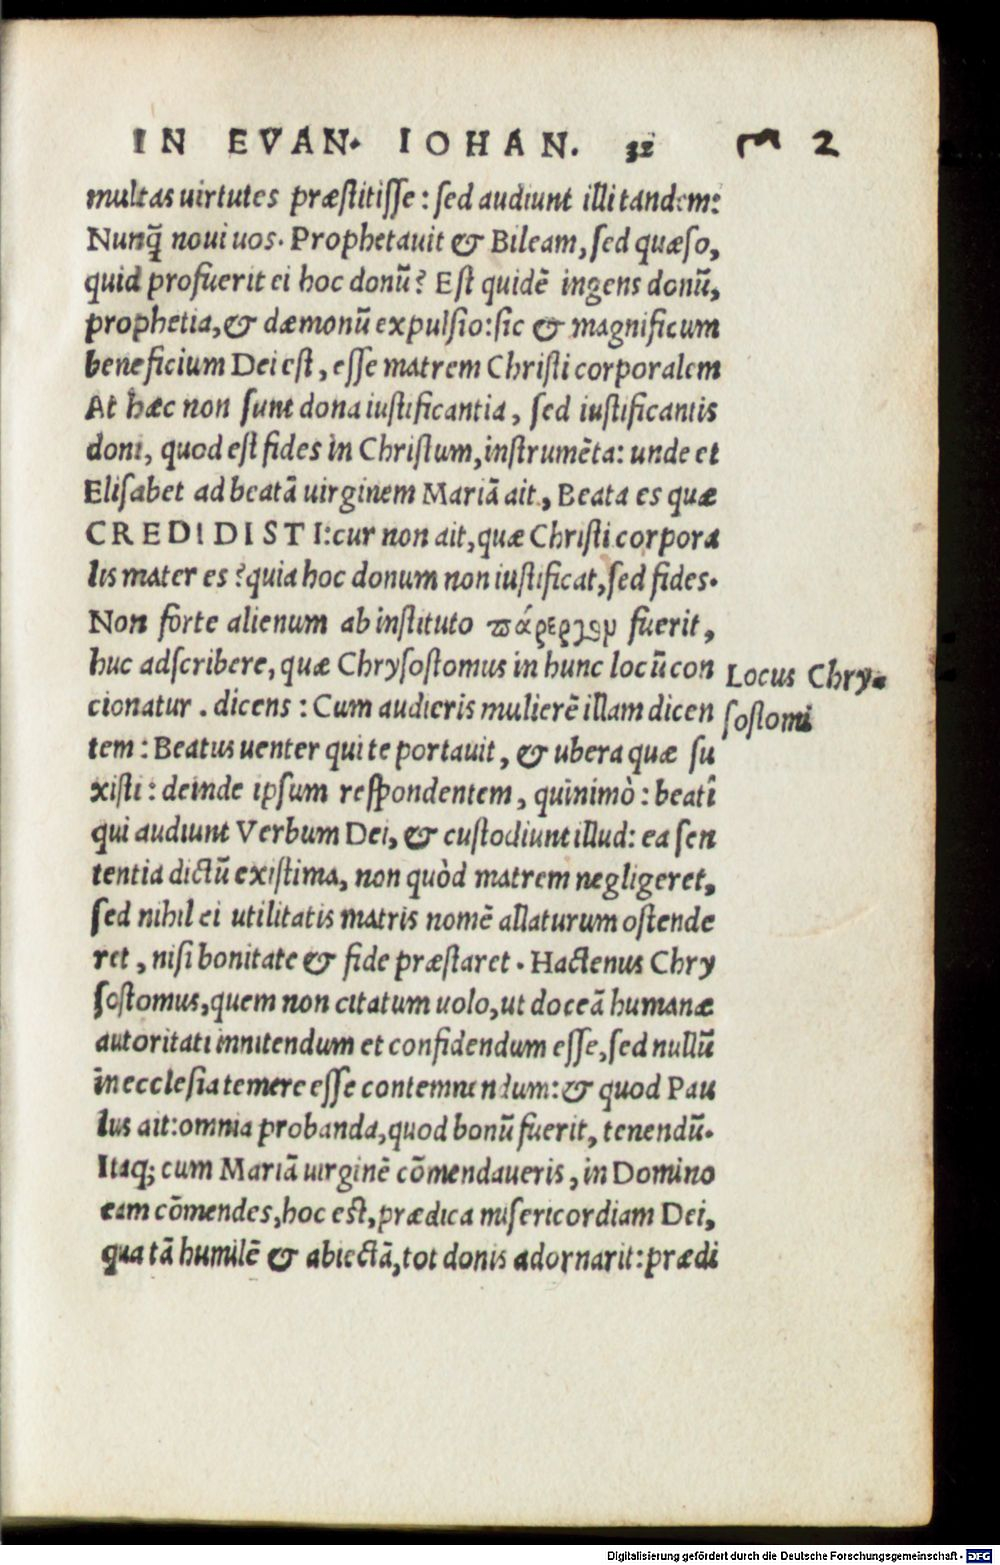 IN EVAN. IOHAN. 32 2
multas uirtutes præstitisse: sed audiunt illi tandem:
Nunq̃ noui uos. Prophetauit & Bileam, sed quæso,
quid profuerit ei hoc donū? Est quidē ingens donū,
prophetia, & dæmonū expulsio: sic & magnificum
beneficium Dei est, esse matrem Christi corporalem
At hæc non sunt dona iustificantia, sed iustificantis
doni, quod est fides in Christum, instrumēta: unde et
Elisabet ad beatā uirginem Mariā ait, Beata es quæ
CREDIDISTI: cur non ait, quæ Christi corpora
lis mater es? quia hoc donum non iustificat, sed fides.
Non forte alienum ab instituto πάρεργον fuerit,
huc adscribere, quæ Chrysostomus in hunc locū con
cionatur. dicens: Cum audieris mulierē illam dicen
tem: Beatus uenter qui te portauit, & ubera quæ su
xisti: deinde ipsum respondentem, quinimò: beati
qui audiunt Verbum Dei, & custodiunt illud: ea sen
tentia dictū existima, non quòd matrem negligeret,
sed nihil ei utilitatis matris nomē allaturum ostende
ret, nisi bonitate & fide præstaret. Hactenus Chry
sostomus, quem non citatum uolo, ut doceā humanæ
autoritati innitendum et confidendum esse, sed nullū
in ecclesia temere esse contemnendum: & quod Pau
lus ait: omnia probanda, quod bonū fuerit, tenendū.
Itaq; cum Mariā uirginē cōmendaueris, in Domino
eam cōmendes, hoc est, prædica misericordiam Dei,
qua tā humilē & abiectā, tot donis adornarit: prædi
Locus Chry-
sostomi
Digitalisierung gefördert durch die Deutsche Forschungsgemeinschaft - DFG